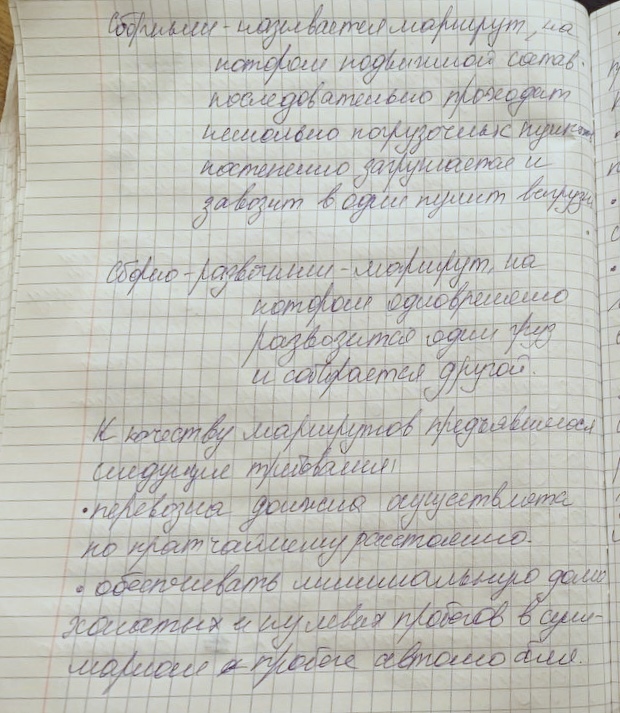 Сборным - называется маршрут, на
котором подвижной состав
последовательно проходит
несколько погрузочных пунктов
постепенно загружается и
завозит в один пункт выгрузки
Сборно-развочный - маршрут, на
котором одновремено
развозится один груз
и собирается другой.
К качеству маршрутов предъявляются
следущие требования
• перевозка должна осуществлятся
по кратчайшему расстоянию.
• обеспечивать минимальную долю
холостых и нулевых пробегов в сум-
марном пробеге автомобиля.